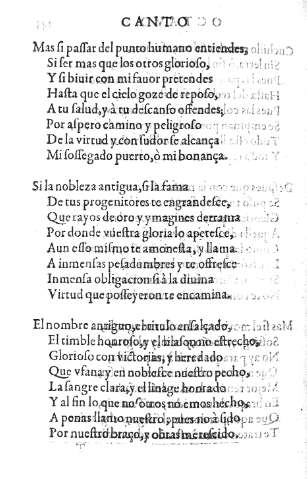 CANTO
Mas si passar del punto humano entiendes,
Si ser mas que los otros glorioso,
Y si biuir con mi fauor pretendes
Hasta que el cielo goze de reposo,
A tu salud, y à tu descanso offendes,
Por aspero camino y peligroso
De la virtud y con sudor se alcança
Mi sossegado puerto, ò mi bonança.
Si la nobleza antigua, si la fama
De tus progenitores te engrandesce,
Que rayos de oro y ymagines derrama
Por donde vuestra gloria lo apetesce,
Aun esso mismo te amonesta, y llama
A inmensas pesadumbres y te offresce
Inmensa obligacion si à la diuina
Virtud que posseyeron te encamina.
El nombre antiguo, el titulo ensalçado,
El timble honroso, y el blason no estrecho,
Glorioso con victorias, y heredado
Que vfana y en noblesce nuestro pecho,
La sangre clara, y el linage honrado
Y al fin lo que nosotros no emos hecho,
A penas llamo nuestro, pues no à sido
Por nuestro braço, y obras merescido.